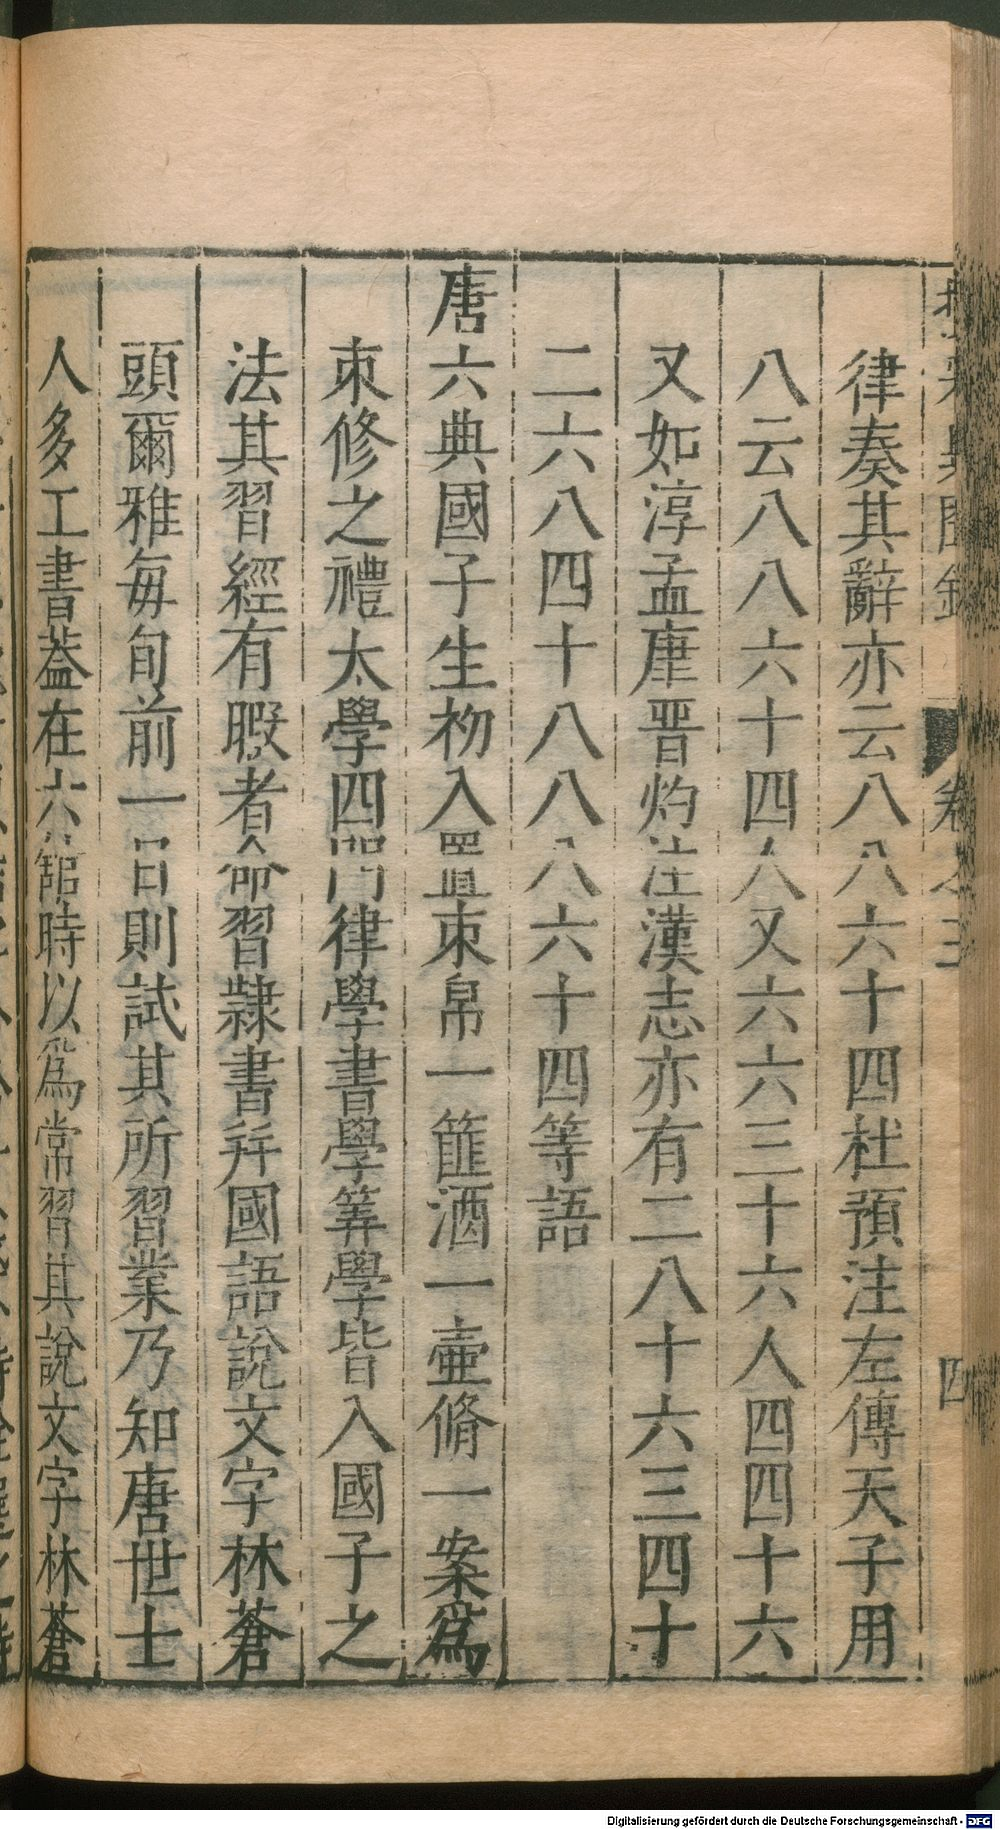 律奏其辭亦云八八六十四杜預注左傳天子用
八云八八六十四人又六六三十六人四四十六
又如淳孟康晋灼注漢志亦有二八十六三四十
二六八四十八八八六十四等語
唐六典國子生初入置束帛一篚酒一壷脩一案爲
束修之禮太學四門律學書學筭學皆入國子之
法其習經有暇者命習隸書幷國語說文字林蒼
頭爾雅每旬前一日則試其所習業乃知唐世士
人多工書葢在六舘時以爲常習其說文字林蒼
卷之三
四
Digitalisierung gefördert durch die Deutsche Forschungsgemeinschaft - DFG